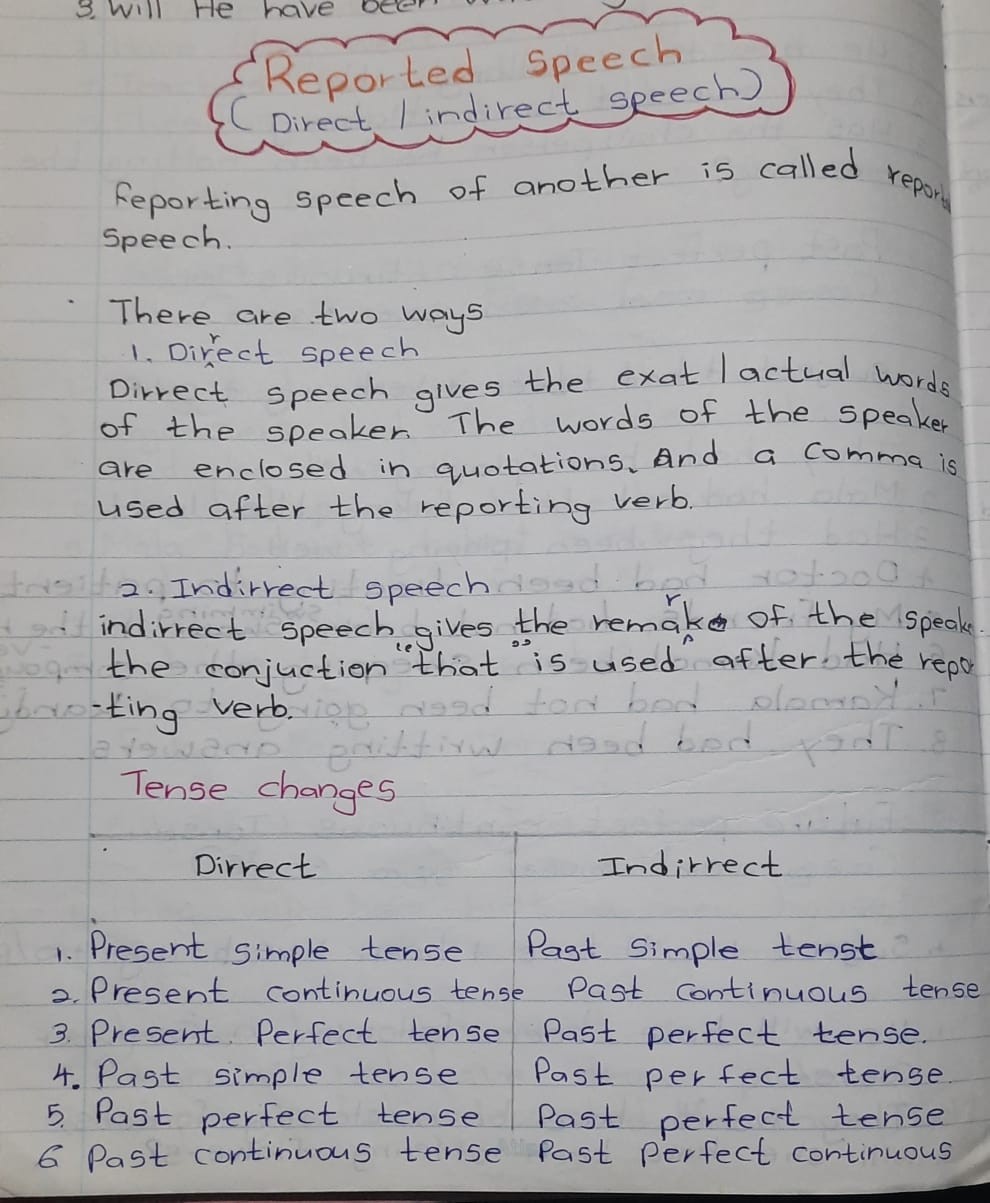 3. Will He have been
Reported Speech
(Direct / indirect speech)
Reporting speech of another is called
speech.
There are two ways
1. Dirrect speech
Dirrect speech gives the exat / actual words
of the speaker. The words of the speaker
are enclosed in quotations. And a comma is
used after the reporting verb.
2. Indirrect speech
indirrect speech gives the remark of the speake
the conjuction "that" is used after the repo
-ting verb.
Tense changes
Dirrect Indirrect
1. Present simple tense Past simple tenst
2. Present continuous tense Past continuous tense
3. Present Perfect tense Past perfect tense.
4. Past simple tense Past perfect tense.
5. Past perfect tense Past perfect tense
6 Past continuous tense Past Perfect continuous